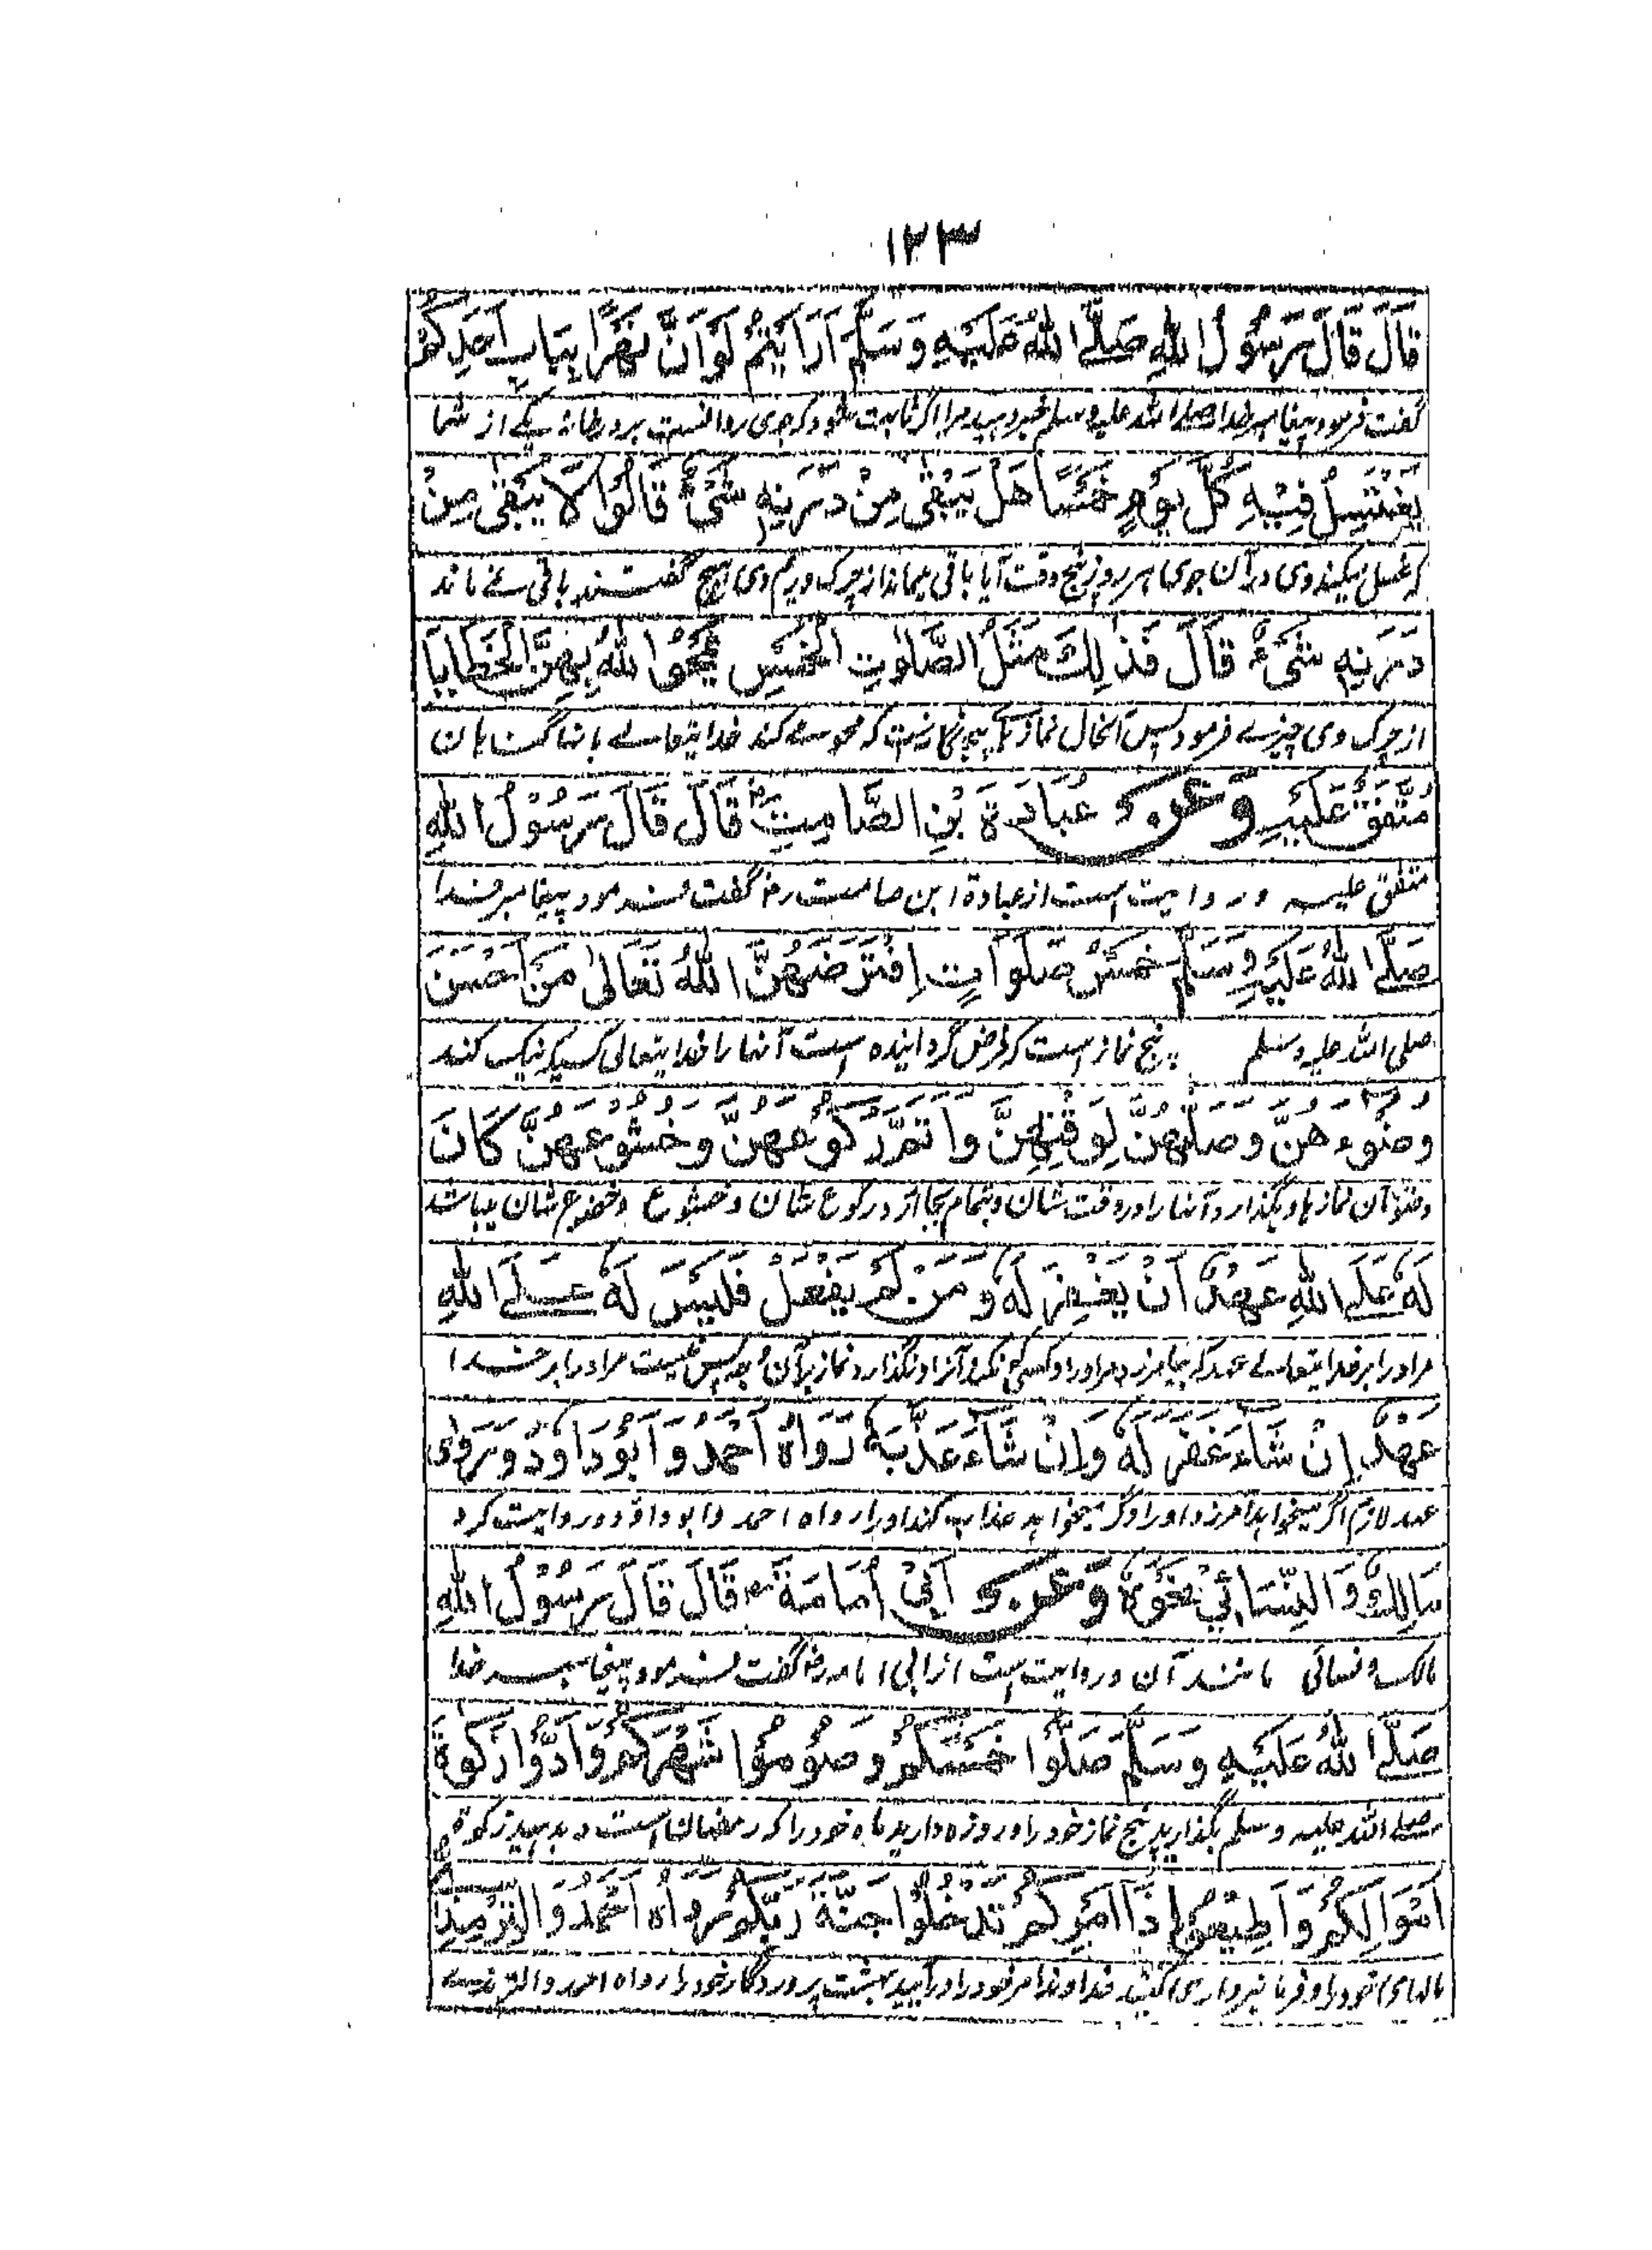 ١٢٣
قَالَ قَالَ رَسُوْلُ اللهِ صَلَّى اللهُ عَلَيْهِ وَسَلَّمَ اَرَاَيْتُمْ لَوْ اَنَّ نَهْرًا بِبَابِ اَحَدِكُمْ
گفت فرمود پیغامبر خدا صلی الله علیه وسلم خبر دهید مرا اگر ثابت شود که جوی روانست بر دروازهٔ یکے از شما
يَغْتَسِلُ فِيْهِ كُلَّ يَوْمٍ خَمْسًا هَلْ يَبْقٰى مِنْ دَرَنِهٖ شَىْءٌ قَالُوْا لَا يَبْقٰى مِنْ
که غسل میکند وی در آن جوی هر روز پنج وقت آیا باقی میماند از چرک و ریم وی هیچ گفتند باقی نے ماند
دَرَنِهٖ شَىْءٌ قَالَ فَذٰلِكَ مَثَلُ الصَّلٰوتِ الْخَمْسِ يَمْحُوا اللهُ بِهِنَّ الْخَطَايَا
از چرک وی چیزے فرمود پس آنحال نمازهاے پنجگانه است که محو مے کند خدایتعالے بانها گناهان
مُتَّفَقٌ عَلَيْهِ وَعَنْ عُبَادَةَ بْنِ الصَّامِتِ رض قَالَ قَالَ رَسُوْلُ اللهِ
متفق علیه و روایت است از عبادة ابن صامت رض گفت فرمود پیغامبر خدا
صَلَّى اللهُ عَلَيْهِ وَسَلَّمَ خَمْسُ صَلَوَاتٍ اِفْتَرَضَهُنَّ اللهُ تَعَالٰى مَنْ اَحْسَنَ
صلی الله علیه وسلم پنج نماز است که فرض گردانیده است آنها را خدایتعالی کسیکه نیک کند
وُضُوْءَهُنَّ وَصَلَّاهُنَّ لِوَقْتِهِنَّ وَاَتَمَّ رُكُوْعَهُنَّ وَخُشُوْعَهُنَّ كَانَ
وضوء آن نمازها و بگذارد آنها را در وقت شان و تمام بجا آرد رکوع شان و خشوع و خضوع شان میباشد
لَهٗ عَلَى اللهِ عَهْدٌ اَنْ يَغْفِرَ لَهٗ وَ مَنْ لَمْ يَفْعَلْ فَلَيْسَ لَهٗ عَلَى اللهِ
مر او را بر خدایتعالے عهد که بیامرزد مر او را و کسی که نکند آنرا و نگذارد نماز بر آن وجه پس نیست مر او را بر خدا
عَهْدٌ اِنْ شَاءَ غَفَرَ لَهٗ وَاِنْ شَاءَ عَذَّبَهٗ رَوَاهُ اَحْمَدُ وَ اَبُوْدَاوٗدَ وَ رَوٰى
عهد لازم اگر میخواهد آمرزد او را و گر میخواهد عذاب کند او را رواه احمد و ابو داوٗد و روایت کرد
مَالِكٌ وَ النِّسَائِيُّ نَحْوَهٗ وَعَنْ اَبِيْ اُمَامَةَ رض قَالَ قَالَ رَسُوْلُ اللهِ
مالک و نسائی مانند آن و روایت است از ابی امامه رض گفت فرمود پیغامبر خدا
صَلَّى اللهُ عَلَيْهِ وَ سَلَّمَ صَلُّوْا خَمْسَكُمْ وَ صُوْمُوْا شَهْرَكُمْ وَ اَدُّوْا زَكٰوةَ
صلے الله علیه وسلم بگذارید پنج نماز خود را و روزه دارید ماه خود را که رمضان است و بدهید زکوة
اَمْوَالِكُمْ وَ اَطِيْعُوْا ذَا اَمْرِكُمْ تَدْخُلُوْا جَنَّةَ رَبِّكُمْ رَوَاهُ اَحْمَدُ وَ التِّرْمِذِيُّ
مالهای خود را و فرمانبرداری کنید خداوند امر خود را در آیید بهشت پروردگار خود را رواه احمد و الترمذے